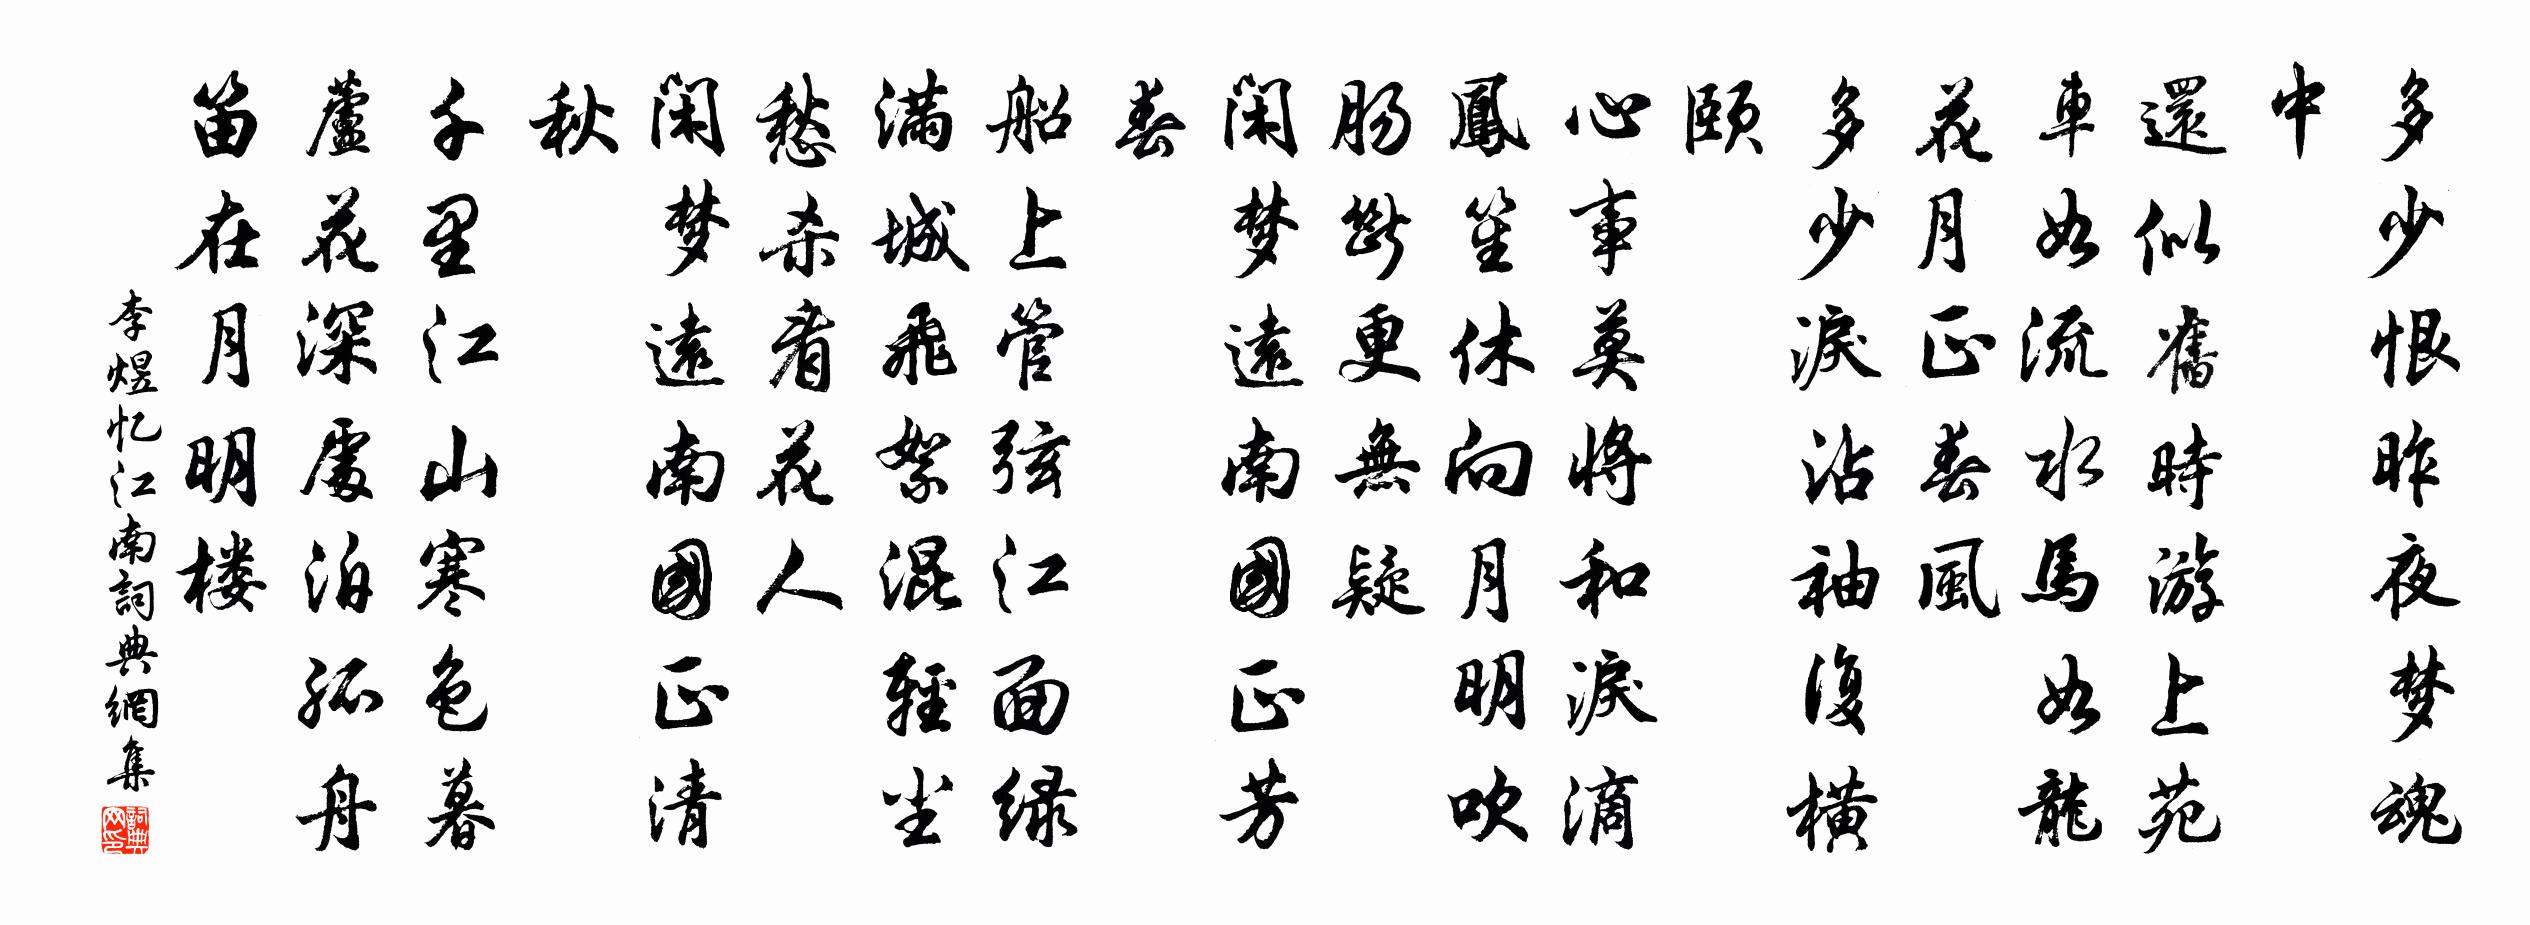 多少恨昨夜梦魂
中
還似舊時游上苑
車如流水馬如龍
花月正春風
多少淚沾袖復橫
頤
心事莫將和淚滴
鳳笙休向月明吹
腸斷更無疑
閑梦遠南國正芳
春
船上管弦江面绿
滿城飛絮混輕尘
愁杀看花人
閑梦遠南國正清
秋
千里江山寒色暮
蘆花深處泊孤舟
笛在月明楼
李煜忆江南詞典網集
詞典网印